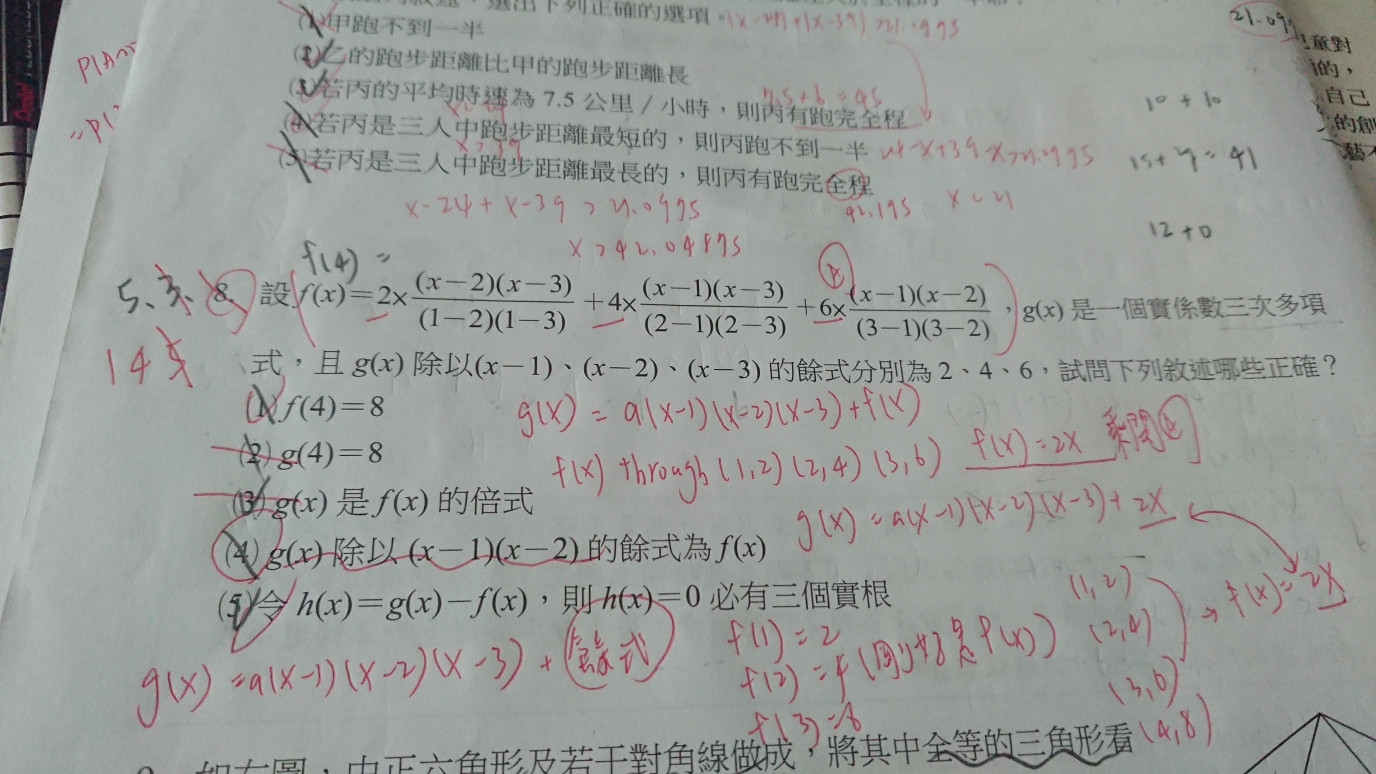 選出下列正確的選項。|x-24|+|x-39|>21.0975
21.0975
(1)甲跑不到一半
(2)乙的跑步距離比甲的跑步距離長
(3)若丙的平均時速為 7.5 公里/小時，則丙有跑完全程
7.5×6=45
10+10
(4)若丙是三人中跑步距離最短的，則丙跑不到一半 24-x+39-x>21.0975
x>39
15+ 41
(5)若丙是三人中跑步距離最長的，則丙有跑完全程
x-24+x-39>21.0975
42.195
x<21
12+0
x>42.04875
f(4)=
5、
8. 設 f(x)=2×(x-2)(x-3)/(1-2)(1-3)+4×(x-1)(x-3)/(2-1)(2-3)+6×(x-1)(x-2)/(3-1)(3-2)，g(x) 是一個實係數三次多項
14
式，且 g(x) 除以(x-1)、(x-2)、(x-3) 的餘式分別為 2、4、6，試問下列敘述哪些正確？
(1) f(4)=8
g(x)=a(x-1)(x-2)(x-3)+f(x)
(2) g(4)=8
f(x) through (1,2)(2,4)(3,6) f(x)=2x
(3) g(x) 是 f(x) 的倍式
g(x)=a(x-1)(x-2)(x-3)+2x
(4) g(x) 除以 (x-1)(x-2) 的餘式為 f(x)
(5) 令 h(x)=g(x)-f(x)，則 h(x)=0 必有三個實根
g(x)=a(x-1)(x-2)(x-3)+餘式
f(1)=2
f(2)=4 (剛好是f(x))
f(3)=6
(1,2)
(2,4)
(3,6)
(4,8)
→ f(x)=2x
如右圖，由正六角形及若干對角線做成，將其中全等的三角形看